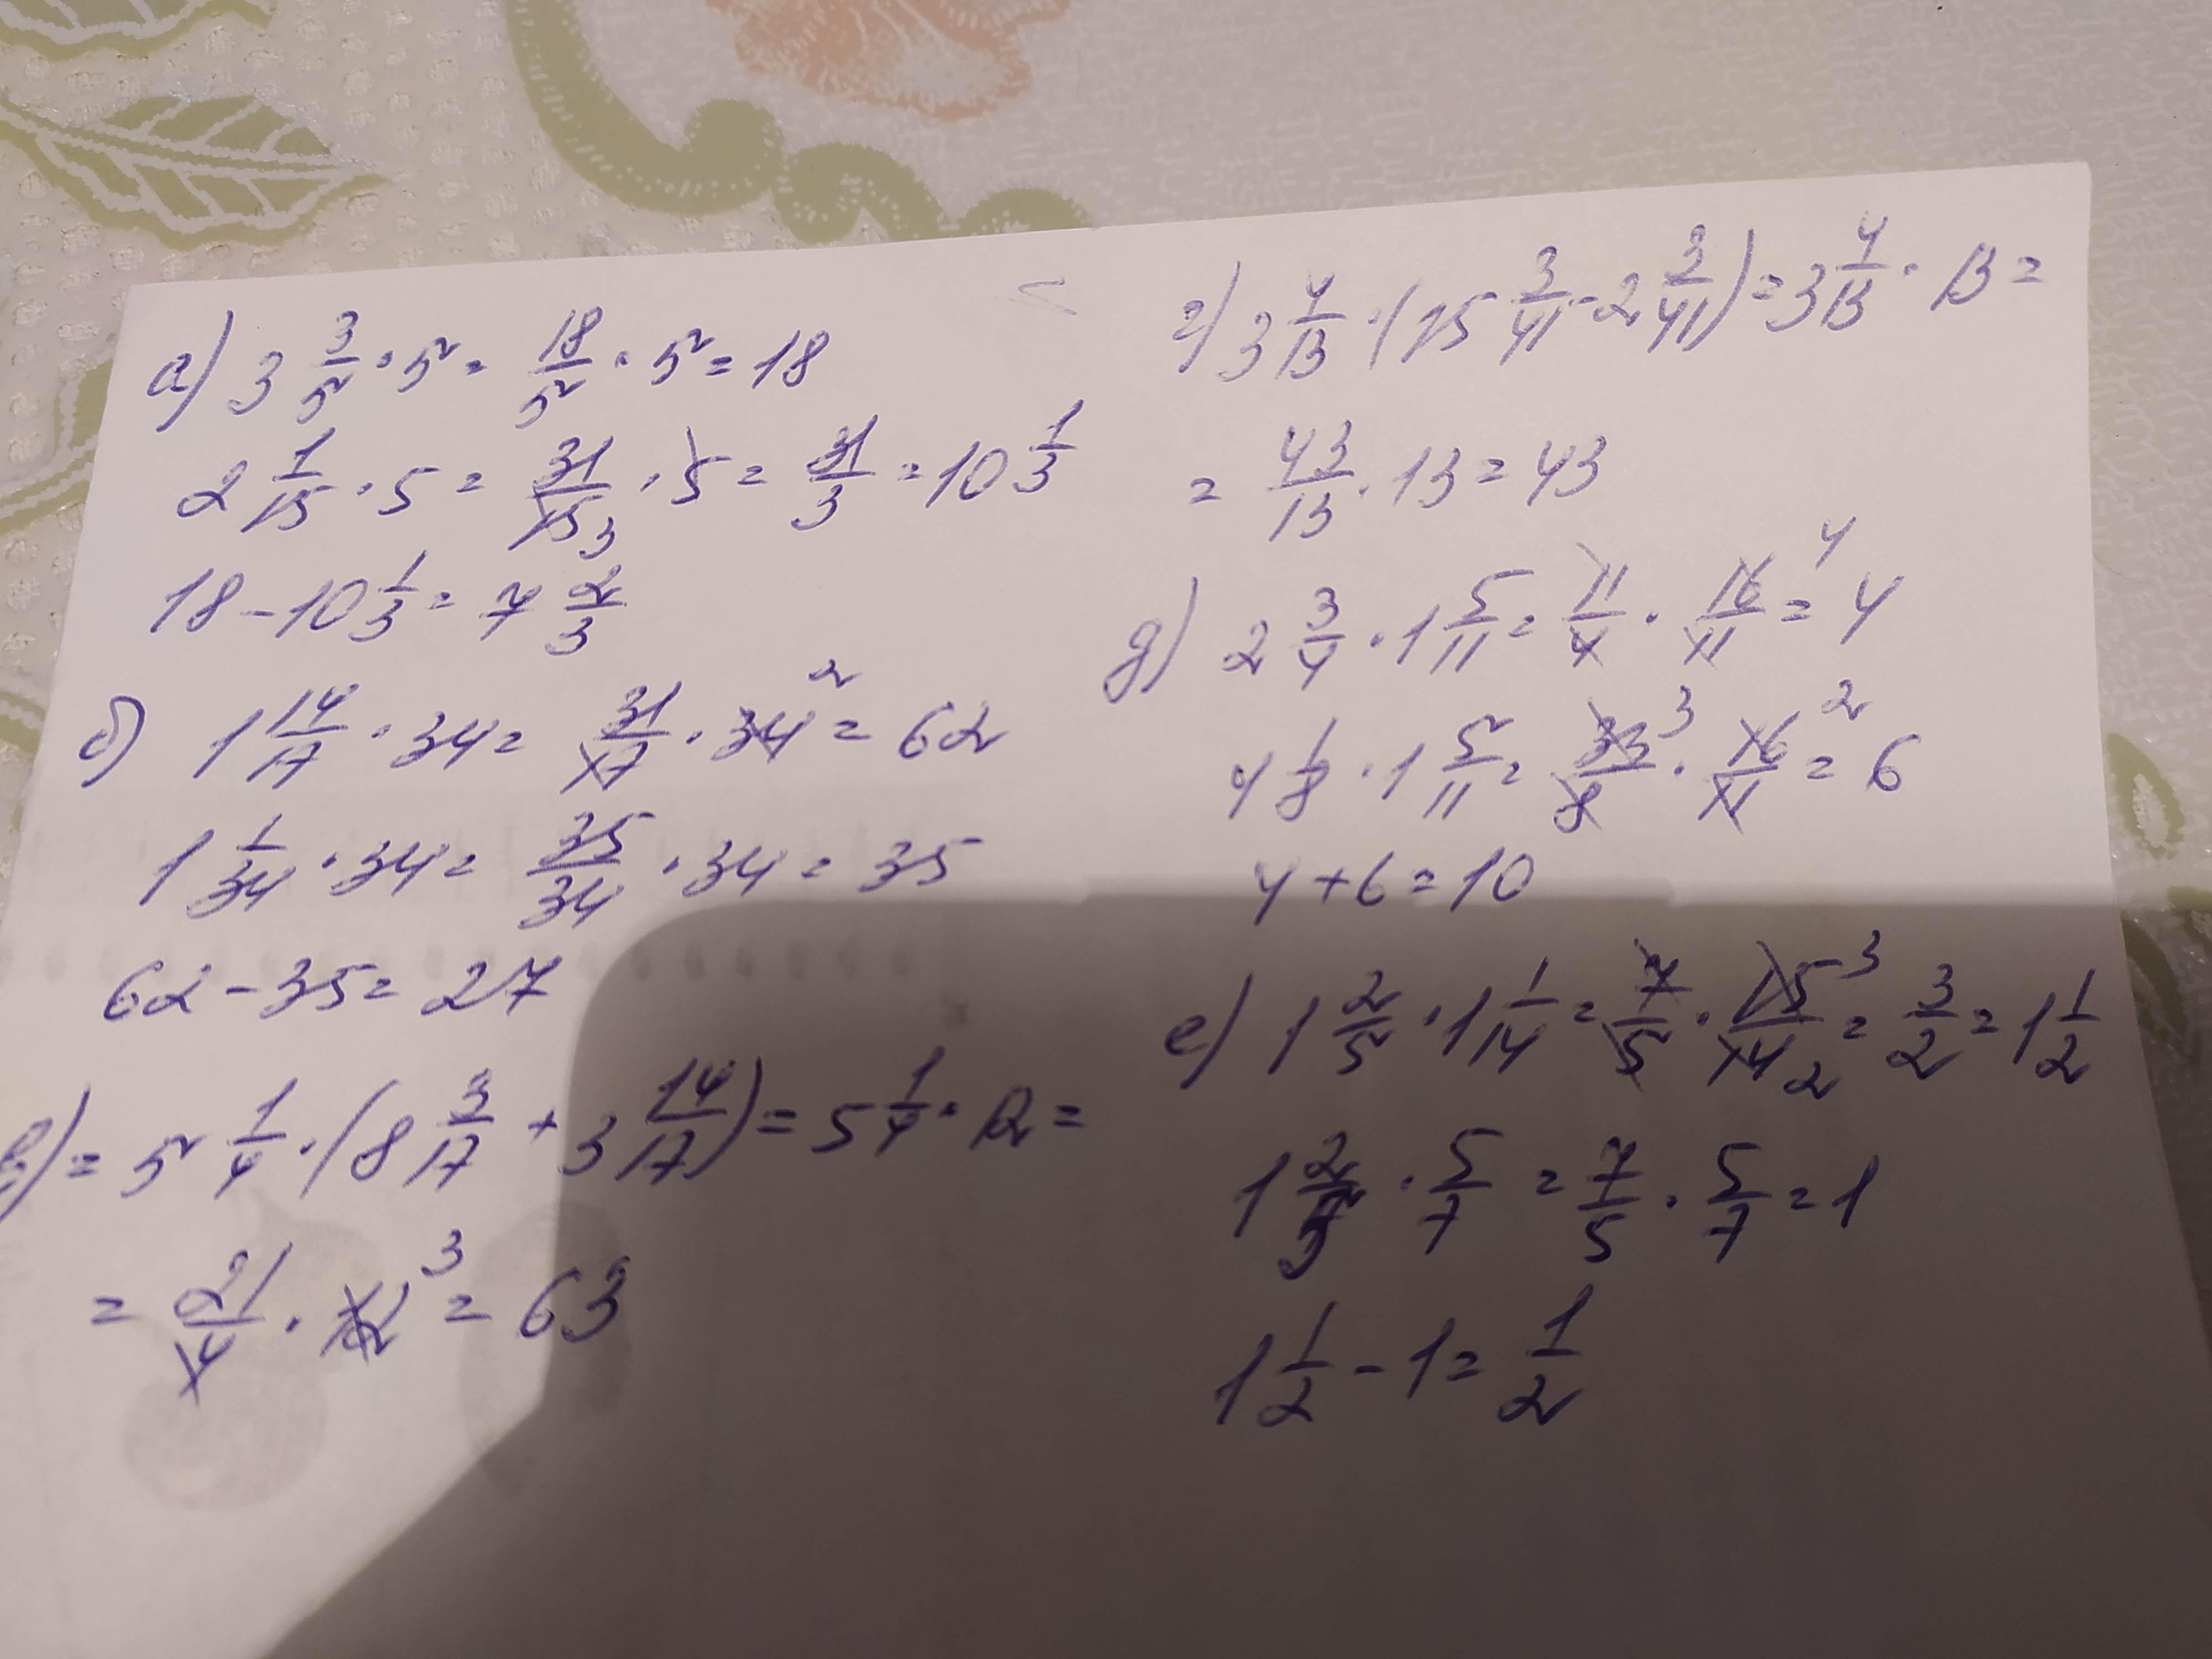 а) 3 3/5 · 5 = 18/5 · 5 = 18
2 1/15 · 5 = 31/15 3 · 5 = 31/3 = 10 1/3
18 - 10 1/3 = 7 2/3
б) 1 14/17 · 34 = 31/17 · 34 2 = 62
1 1/34 · 34 = 35/34 · 34 = 35
62 - 35 = 27
в) = 5 1/4 · (8 3/17 + 3 14/17) = 5 1/4 · 12 =
= 21/4 · 12 3 = 63
г) 3 4/13 · (15 2/41 - 2 2/41) = 3 4/13 · 13 =
= 43/13 · 13 = 43
д) 2 3/4 · 1 5/11 = 11/4 · 16/11 4 = 4
4 1/8 · 1 5/11 = 33 3/8 · 16 2/11 = 6
4 + 6 = 10
е) 1 2/5 · 1 1/14 = 7/5 · 15 3/14 2 = 3/2 = 1 1/2
1 2/5 · 5/7 = 7/5 · 5/7 = 1
1 1/2 - 1 = 1/2